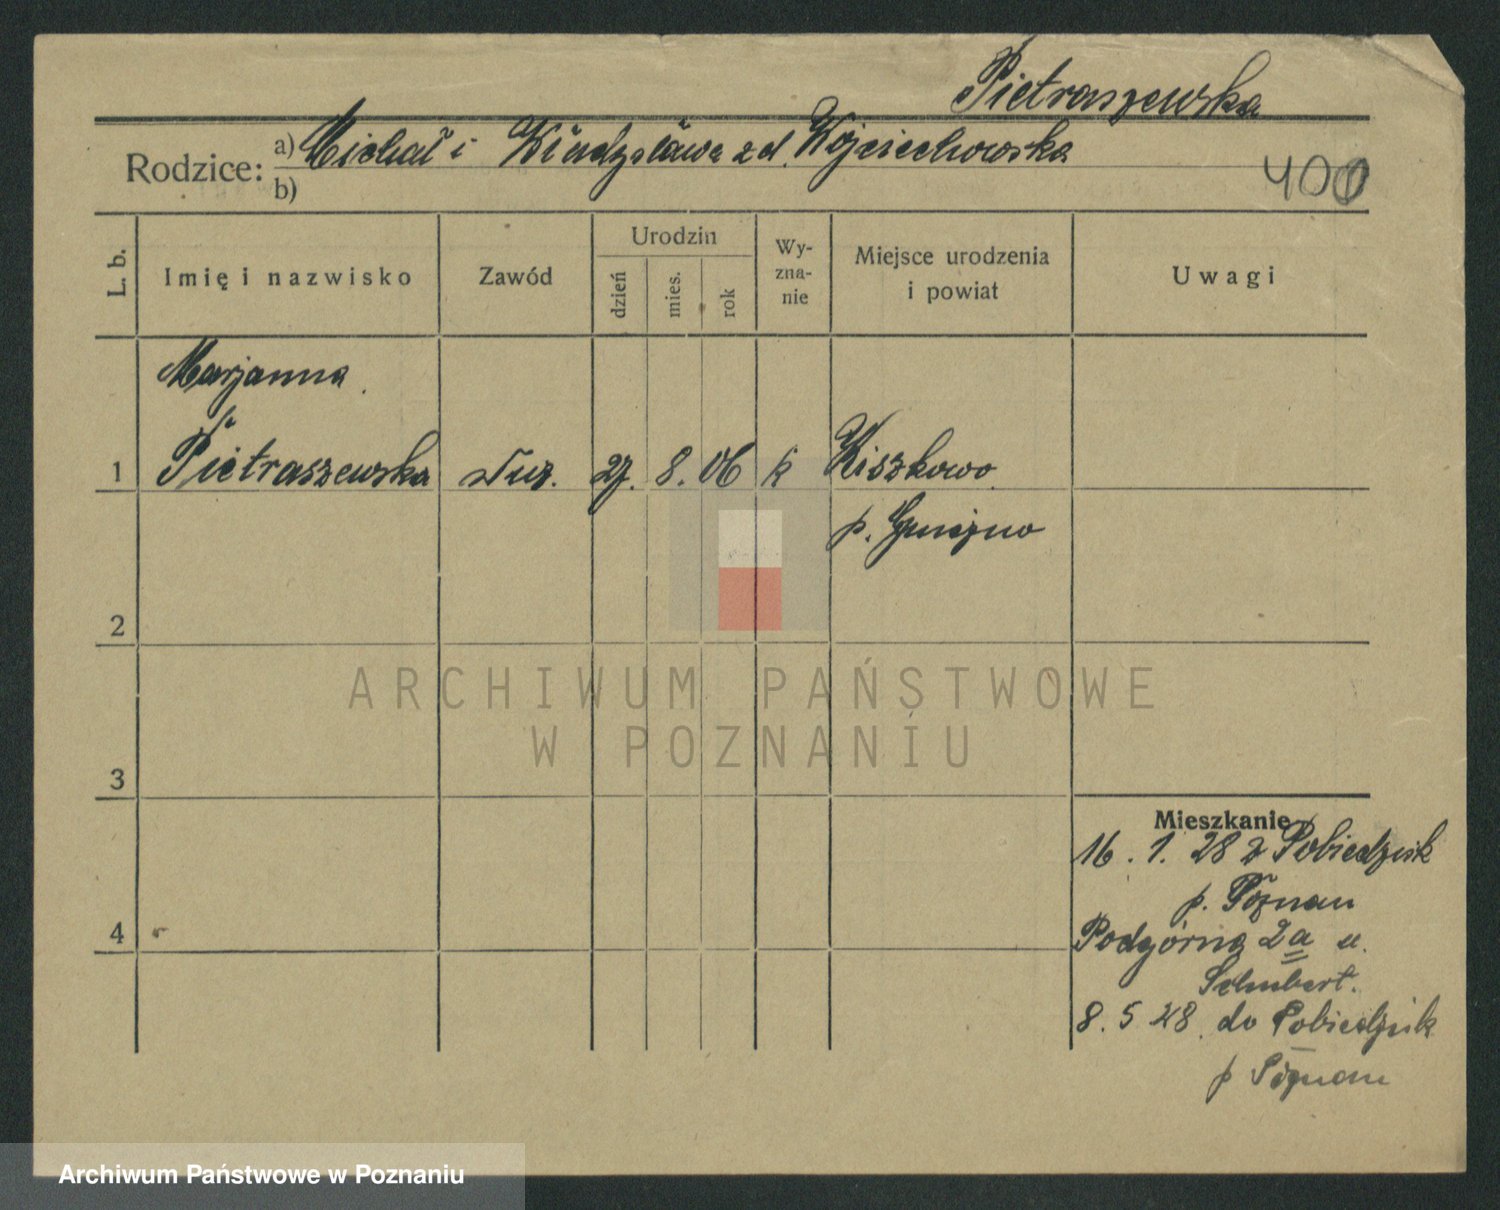 Pietraszewska
Rodzice: a) Michał i Władysława z d. Wojciechowska
b)
400
L. b.
Imię i nazwisko
Zawód
Urodzin
dzień
mies.
rok
Wy-
zna-
nie
Miejsce urodzenia
i powiat
Uwagi
Marjanna
1 Pietraszewska służ. 27. 8. 06 k Kiszkowo
p. Gniezno
2
3
4
ARCHIWUM PAŃSTWOWE
W POZNANIU
Mieszkanie
16. 1. 28 z Pobiedzisk
p. Poznań
Podgórna 2a u.
Schubert.
8. 5 28. do Pobiedzisk
p Poznań
Archiwum Państwowe w Poznaniu